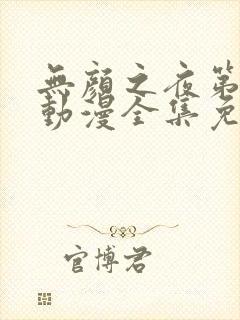 無顏之夜第
動漫全集免
官博君